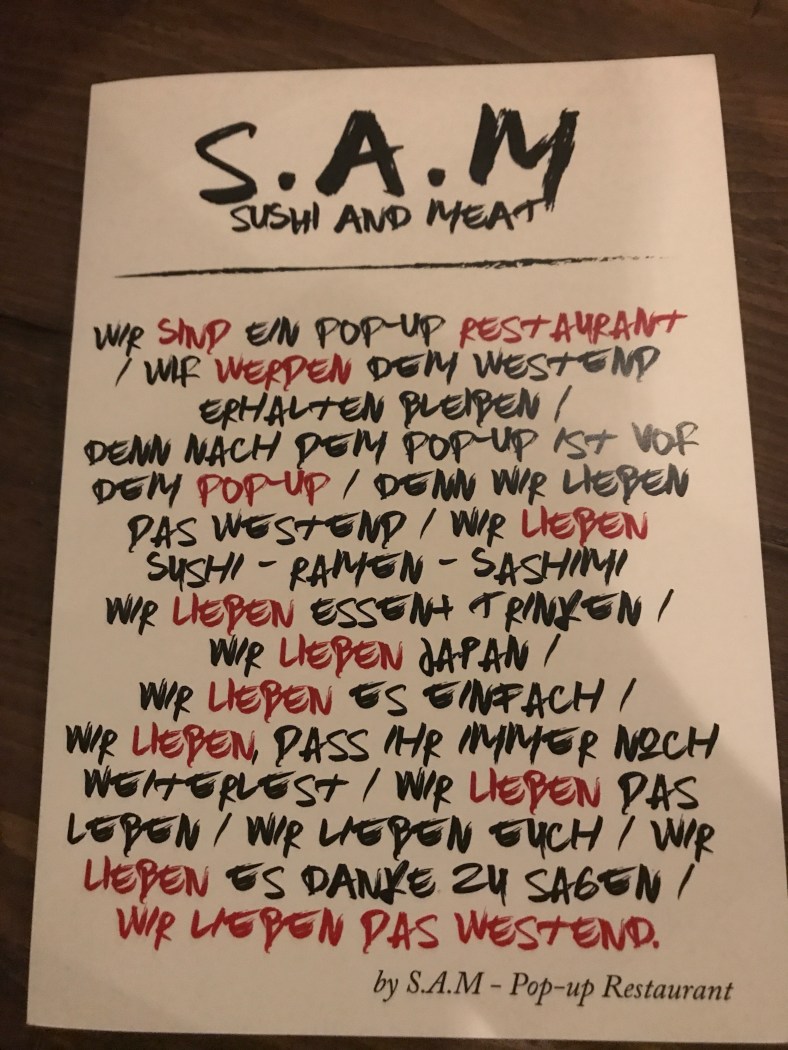 S.A.M
SUSHI AND MEAT
WIR SIND EIN POP-UP RESTAURANT
/ WIR WERDEN DEM WESTEND
ERHALTEN BLEIBEN /
DENN NACH DEM POP-UP IST VOR
DEM POP-UP / DENN WIR LIEBEN
DAS WESTEND / WIR LIEBEN
SUSHI - RAMEN - SASHIMI
WIR LIEBEN ESSEN+ TRINKEN /
WIR LIEBEN JAPAN /
WIR LIEBEN ES EINFACH /
WIR LIEBEN, DASS IHR IMMER NOCH
WEITERLEST / WIR LIEBEN DAS
LEBEN / WIR LIEBEN EUCH / WIR
LIEBEN ES DANKE ZU SAGEN /
WIR LIEBEN DAS WESTEND.
by S.A.M - Pop-up Restaurant